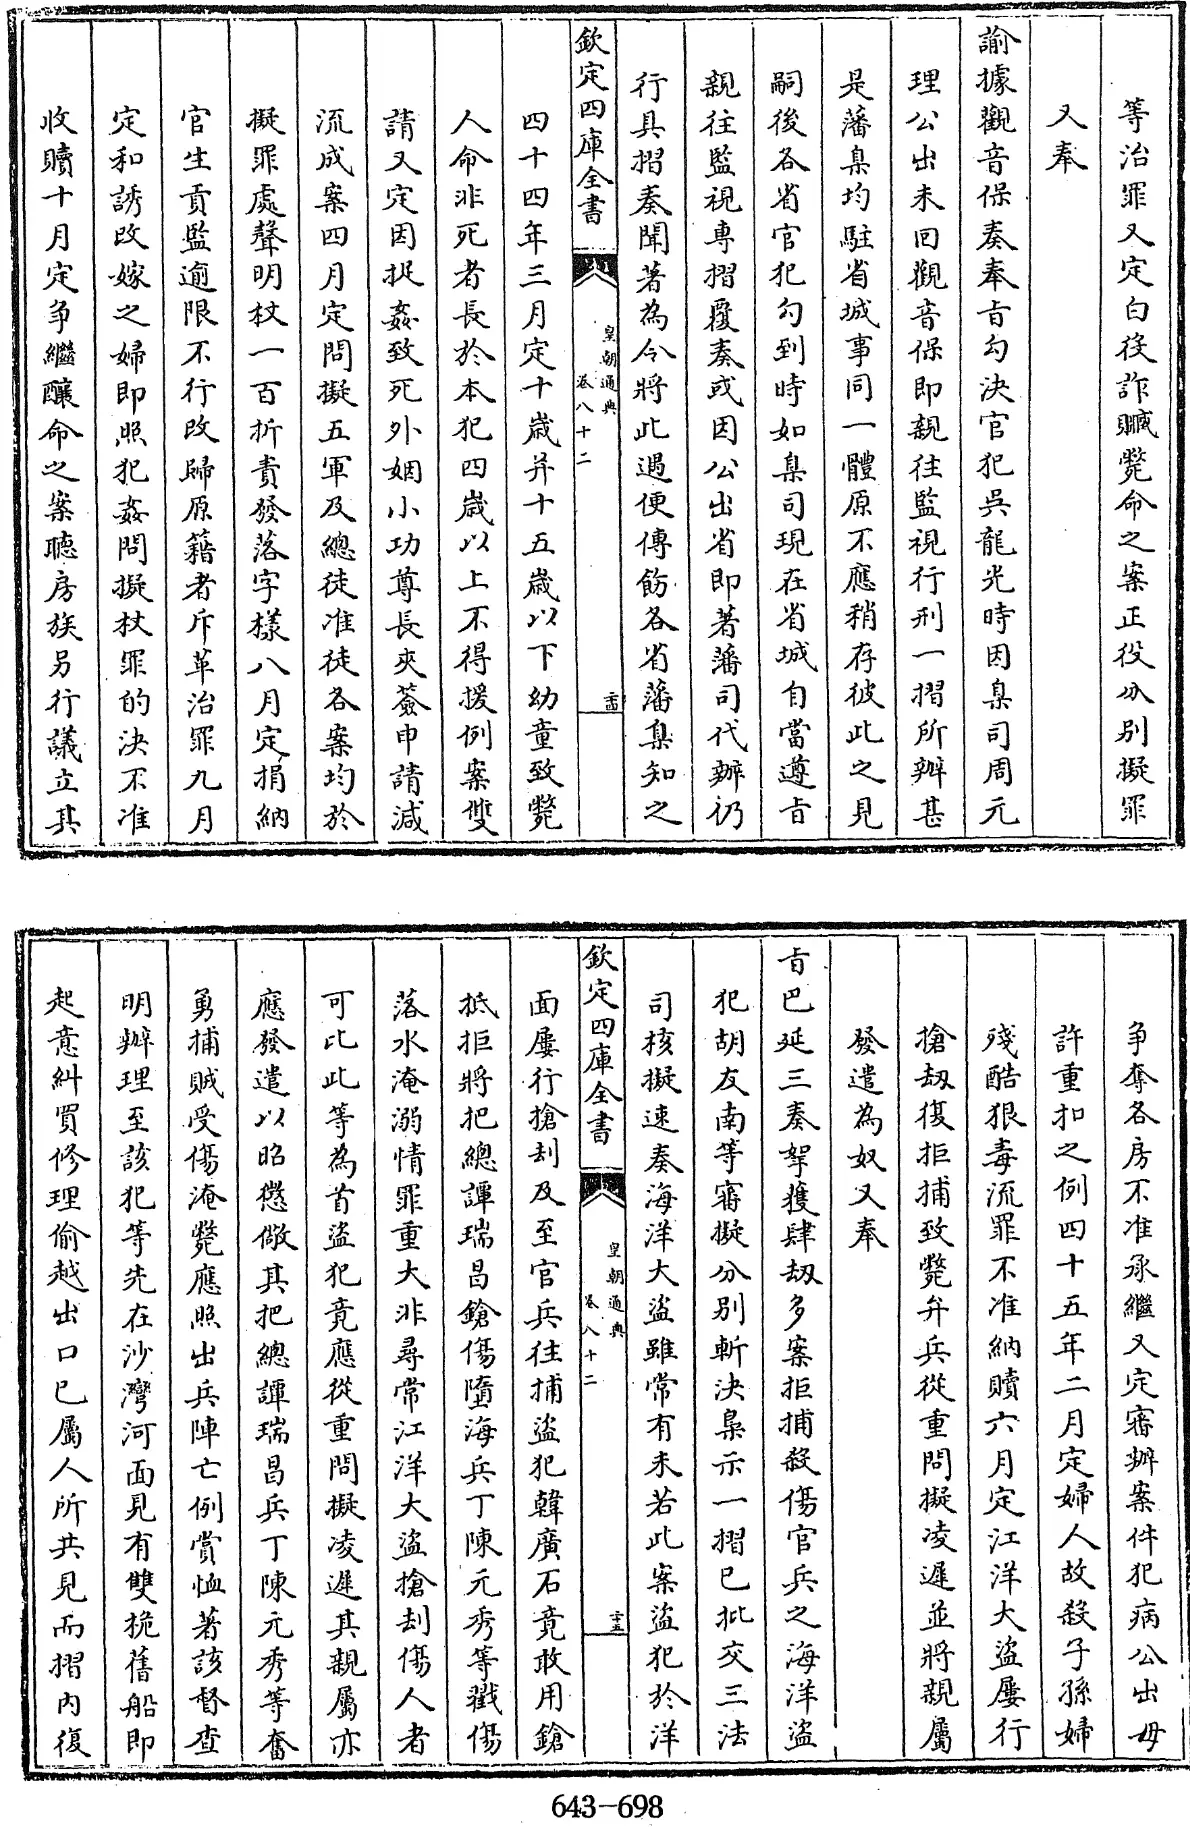 等治罪又定白役詐贓斃命之案正役分別擬罪
又奉
諭據觀音保奏奉旨勾決官犯吳龍光時因臬司周元
理公出未回觀音保即親往監視行刑一摺所辦甚
是藩臬均駐省城事同一體原不應稍存彼此之見
嗣後各省官犯勾到時如臬司現在省城自當遵旨
親往監視專摺覆奏或因公出省即著藩司代辦仍
行具摺奏聞著為令將此遇便傳飭各省藩臬知之
欽定四庫全書
皇朝通典
卷八十二
二十四
四十四年三月定十歲并十五歲以下幼童致斃
人命非死者長於本犯四歲以上不得援例案雙
請又定因捉姦致死外姻小功尊長夾簽申請減
流成案四月定問擬五軍及總徒准徒各案均於
擬罪處聲明杖一百折責發落字樣八月定捐納
官生貢監逾限不行改歸原籍者斥革治罪九月
定和誘改嫁之婦即照犯姦問擬杖罪的決不准
收贖十月定爭繼釀命之案聽房族另行議立其
爭奪各房不准承繼又定審辦案件犯病公出毋
許重扣之例四十五年二月定婦人故殺子孫婦
殘酷狠毒流罪不准納贖六月定江洋大盜屢行
搶劫復拒捕致斃弁兵從重問擬凌遲並將親屬
發遣為奴又奉
旨巴延三奏拏獲肆劫多案拒捕殺傷官兵之海洋盜
犯胡友南等審擬分別斬決梟示一摺已批交三法
司核擬速奏海洋大盜雖常有未若此案盜犯於洋
欽定四庫全書
皇朝通典
卷八十二
二十五
面屢行搶刦及至官兵往捕盜犯韓廣石竟敢用鎗
抵拒將把總譚瑞昌鎗傷墮海兵丁陳元秀等戳傷
落水淹溺情罪重大非尋常江洋大盜搶刦傷人者
可比此等為首盜犯竟應從重問擬凌遲其親屬亦
應發遣以昭懲儆其把總譚瑞昌兵丁陳元秀等奮
勇捕賊受傷淹斃應照出兵陣亡例賞恤著該督查
明辦理至該犯等先在沙灣河面見有雙桅舊船即
起意糾買修理偷越出口已屬人所共見而摺內復
643-698